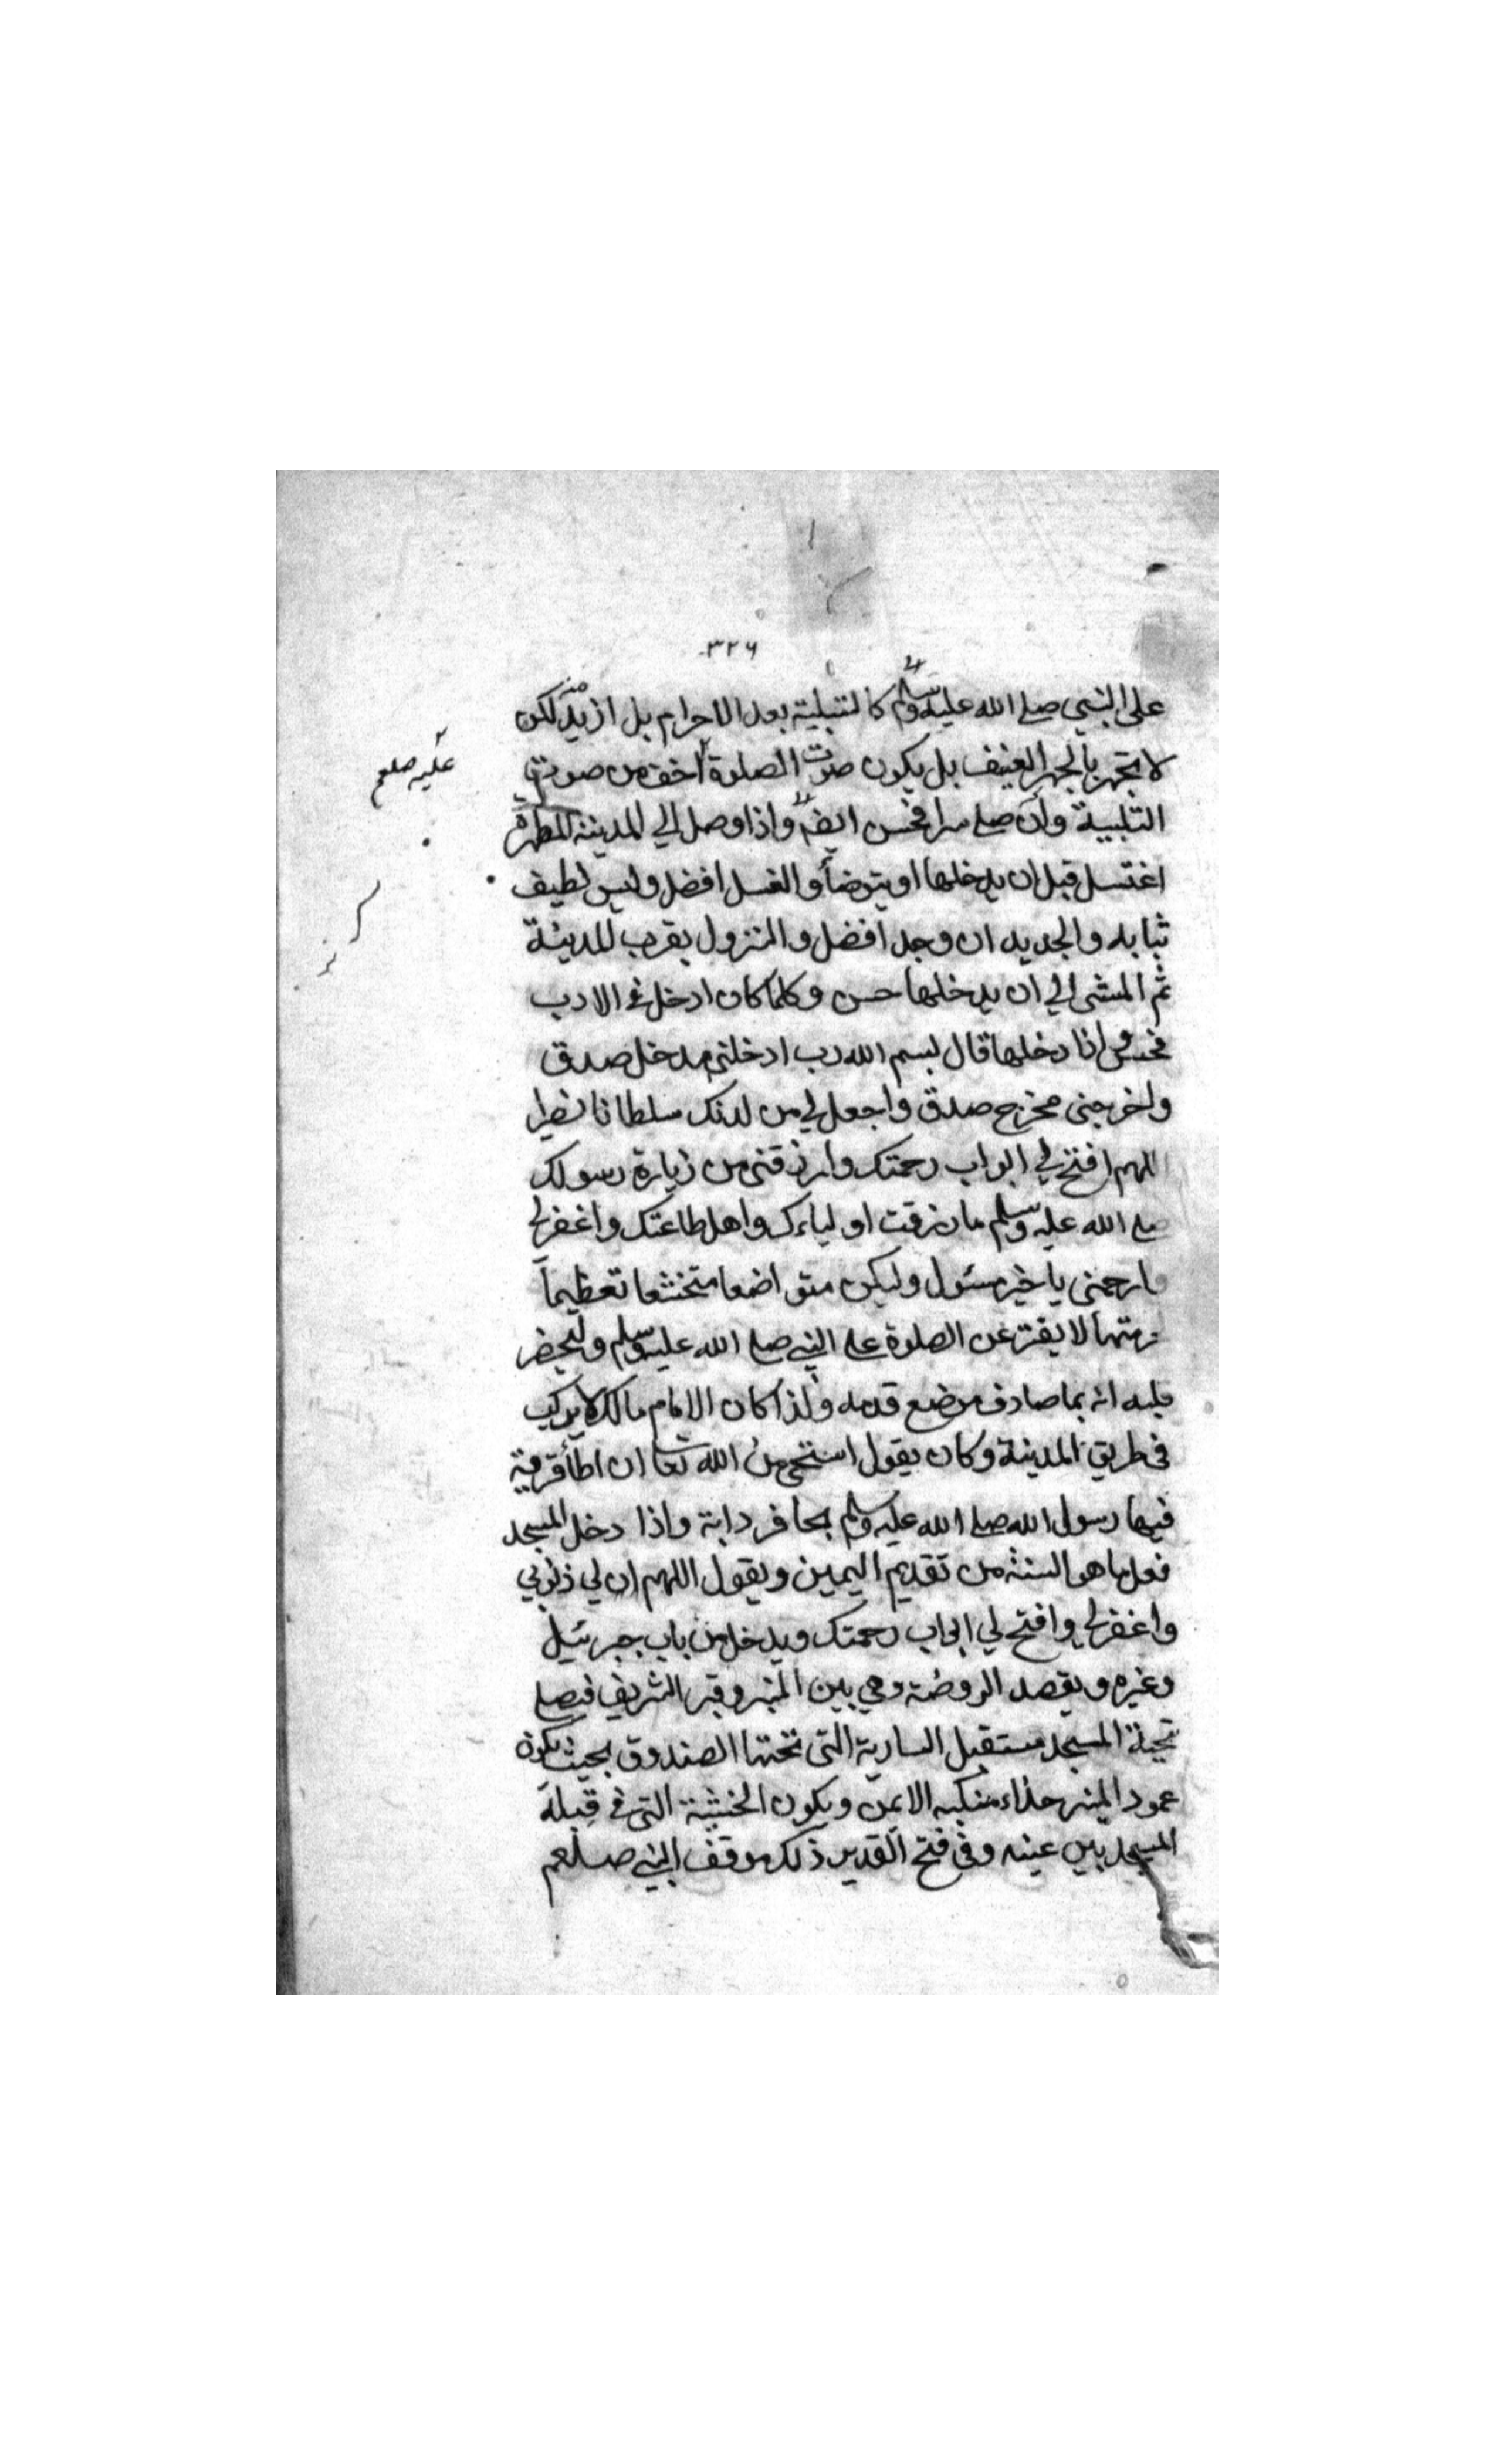 ٣٢٦
على النبي صلى الله عليه وسلم كالتبلية بعد الاحرام بل ازيد منه لكن
لا يجهر بالجهر العنيف بل يكون صوت الصلوة اخف من صوته في
عليه صلعم
التلبية وان صلى سرا فحسن ايضا واذا وصل الى المدينة المطهرة
اغتسل قبل ان يدخلها او يتوضأ والغسل افضل ولبس لطيف
ثيابه والجديد ان وجد افضل والنزول بقرب المدينة
ثم المشى الى ان يدخلها حسن وكلما كان ادخل في الادب
فحسن واذا دخلها قال بسم الله رب ادخلني مدخل صدق
واخرجني مخرج صدق واجعل لي من لدنك سلطانا نصيرا
اللهم افتح لي ابواب رحمتك وارزقني من زيارة رسولك
صلى الله عليه وسلم ما رزقت اولياءك واهل طاعتك واغفر لي
وارحمني يا خير مسئول وليكن متواضعا متخشعا تعظيماً
لحرمتها لا يفتر عن الصلوة على النبي صلى الله عليه وسلم وليحضر
قلبه انه بما صادف موضع قدمه ولذا كان الامام مالك لا يركب
في طريق المدينة وكان يقول استحى من الله تعا ان اطأ قرية
فيها رسول الله صلى الله عليه وسلم بحافر دابة واذا دخل المسجد
فعل ما هو السنة من تقديم اليمين ويقول اللهم ان لي ذنوبي
واغفر لي وافتح لي ابواب رحمتك ويدخل من باب جبرئيل
وغيره ويقصد الروضة وهي بين المنبر وقبر الشريف فيصلي
تحية المسجد مستقبل السارية التي تحتها الصندوق بحيث يكون
عمود المنبر حذاء منكبه الايمن ويكون الخشبة التي في قبلة
المسجد بين عينه وفي فتح القدير ذلك موقف النبي صلعم